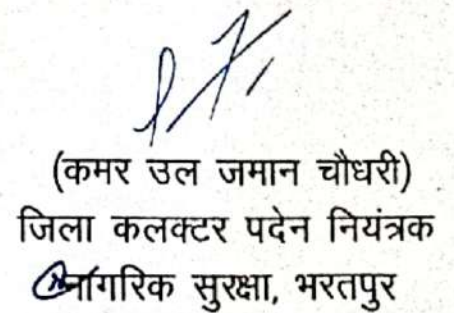 (कमर उल जमान चौधरी)
जिला कलक्टर पदेन नियंत्रक
नागरिक सुरक्षा, भरतपुर